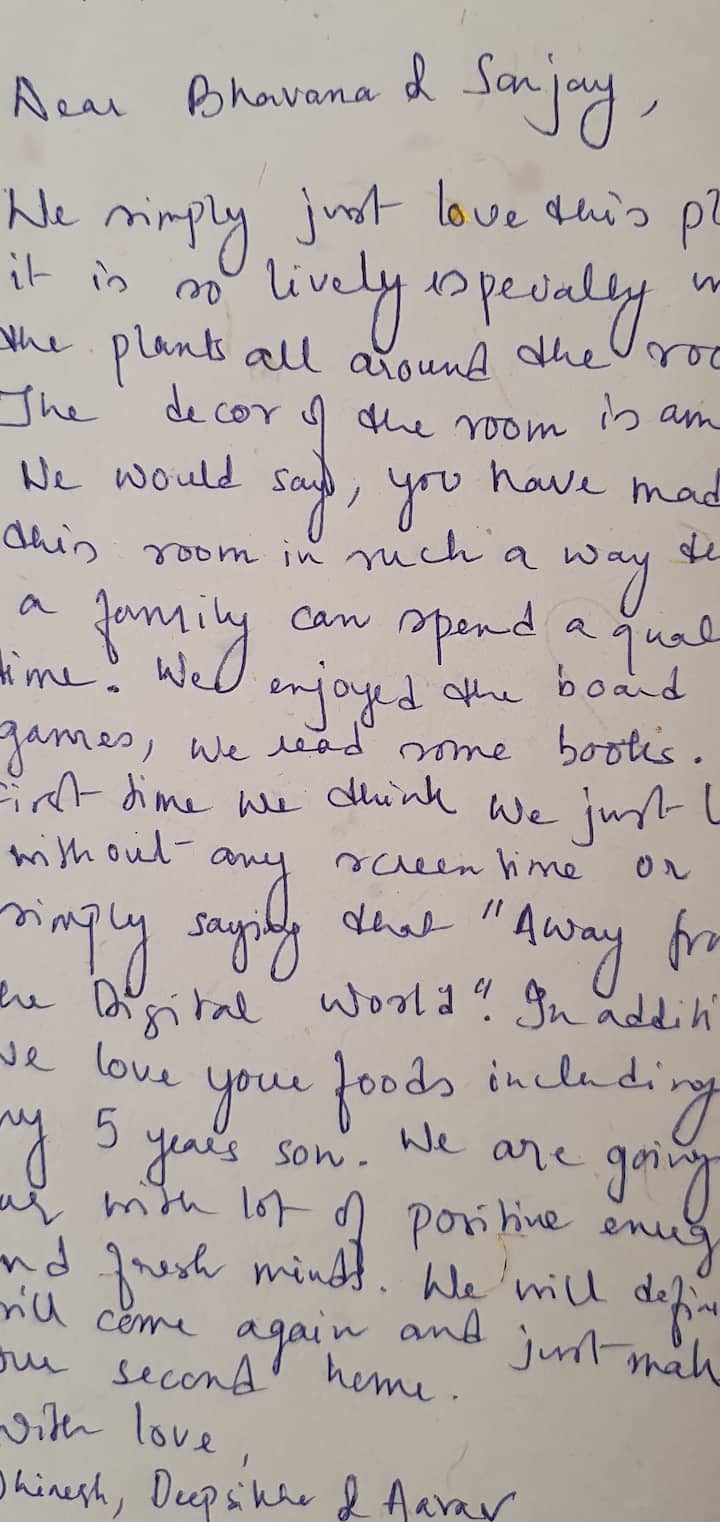 Dear Bhavana & Sanjay,
We simply just love this pl
it is so lively especially
the plants all around the roo
The decor of the room is am
We would say, you have mad
this room in such a way
a family can spend a qual
time. We enjoyed the board
games, we read some books.
First time we think we just
without any screen time or
simply saying that "Away fro
he Digital World". In additi
ve love your foods including
my 5 years son. We are going
with lot of positive energ
nd fresh minds. We will defin
will come again and just mak
our second home.
With love,
Dhinesh, Deepsikha & Aarav